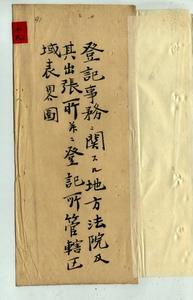 登記事務ニ関スル地方法院及
其出張所並ニ登記所管轄区
域表畧図